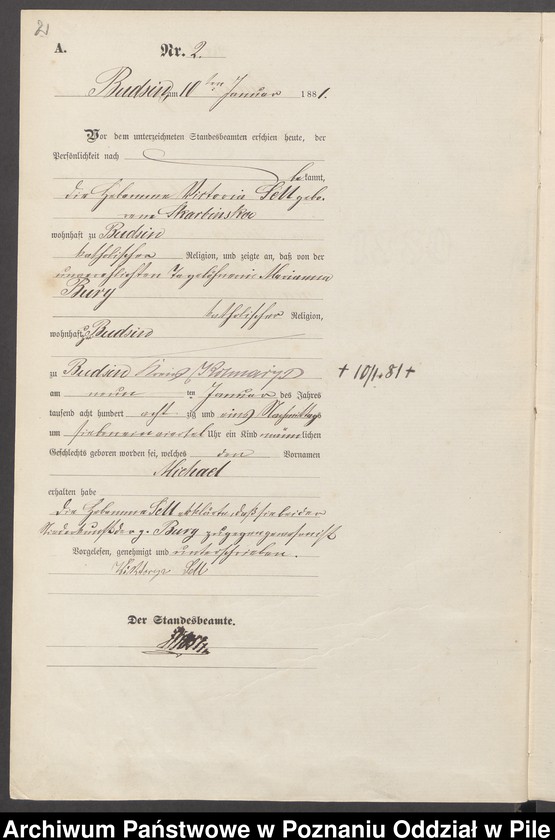 2
A. Nr. 2.
Budsin, am 10 ten Januar 1881.
Vor dem unterzeichneten Standesbeamten erschien heute, der
Persönlichkeit nach
bekannt,
die Hebamme Victoria Sell gebo-
rene Skarbinska
wohnhaft zu Budsin
katholischer Religion, und zeigte an, daß von der
unverehelichten Tagelöhnerin Marianna
Bury
katholischer Religion,
wohnhaft zu Budsin
zu Budsin Kreis Kolmar i/P + 10/1.81 +
am neun ten Januar des Jahres
tausend acht hundert acht zig und eins Nachmittags
um sieben einviertel Uhr ein Kind männlichen
Geschlechts geboren worden sei, welches den Vornamen
Michael
erhalten habe
Die Hebamme Sell erklärte, daß sie bei der
Niederkunft der p. Bury zugegen gewesen ist
Vorgelesen, genehmigt und unterschrieben.
Wiktorya Sell
Der Standesbeamte.
Archiwum Państwowe w Poznaniu Oddział w Pile